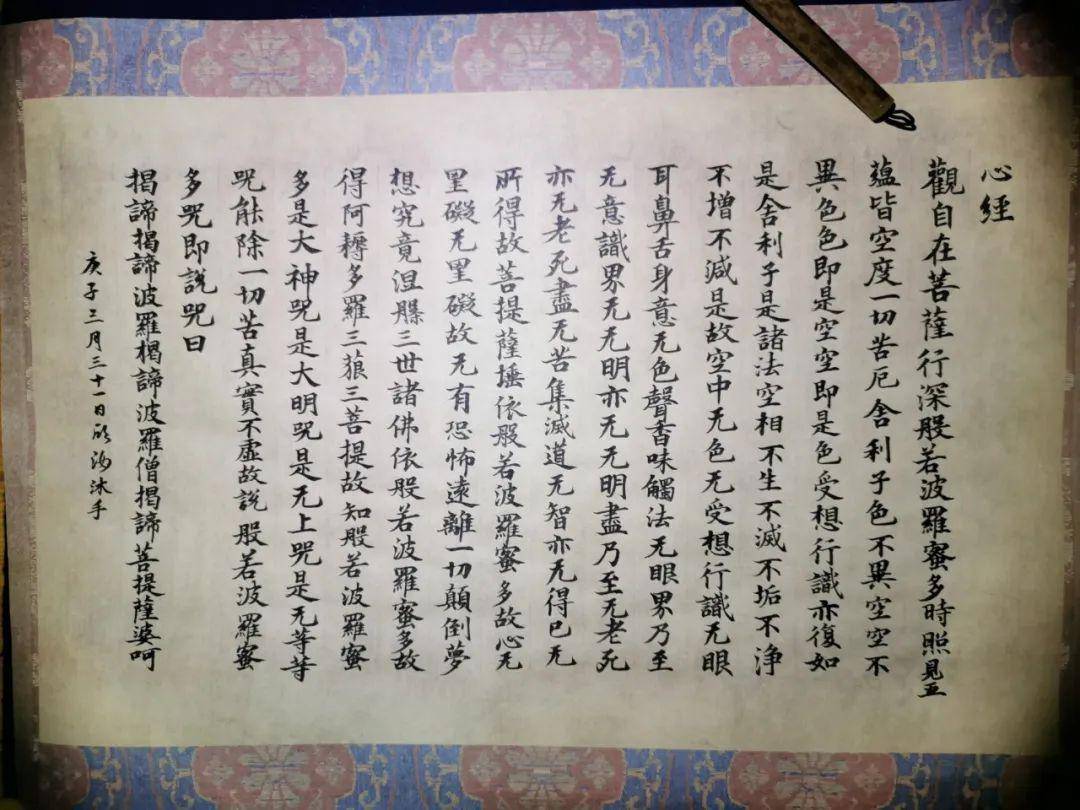 心經
觀自在菩薩行深般若波羅蜜多時照見五
蘊皆空度一切苦厄舍利子色不異空空不
異色色即是空空即是色受想行識亦復如
是舍利子是諸法空相不生不滅不垢不淨
不增不減是故空中无色无受想行識无眼
耳鼻舌身意无色聲香味觸法无眼界乃至
无意識界无无明亦无无明盡乃至无老死
亦无老死盡无苦集滅道无智亦无得已无
所得故菩提薩埵依般若波羅蜜多故心无
罣礙无罣礙故无有恐怖遠離一切顛倒夢
想究竟涅槃三世諸佛依般若波羅蜜多故
得阿耨多羅三藐三菩提故知般若波羅蜜
多是大神咒是大明咒是无上咒是无等等
咒能除一切苦真實不虛故說般若波羅蜜
多咒即說咒曰
揭諦揭諦波羅揭諦波羅僧揭諦菩提薩婆呵
庚子三月三十一日沐手